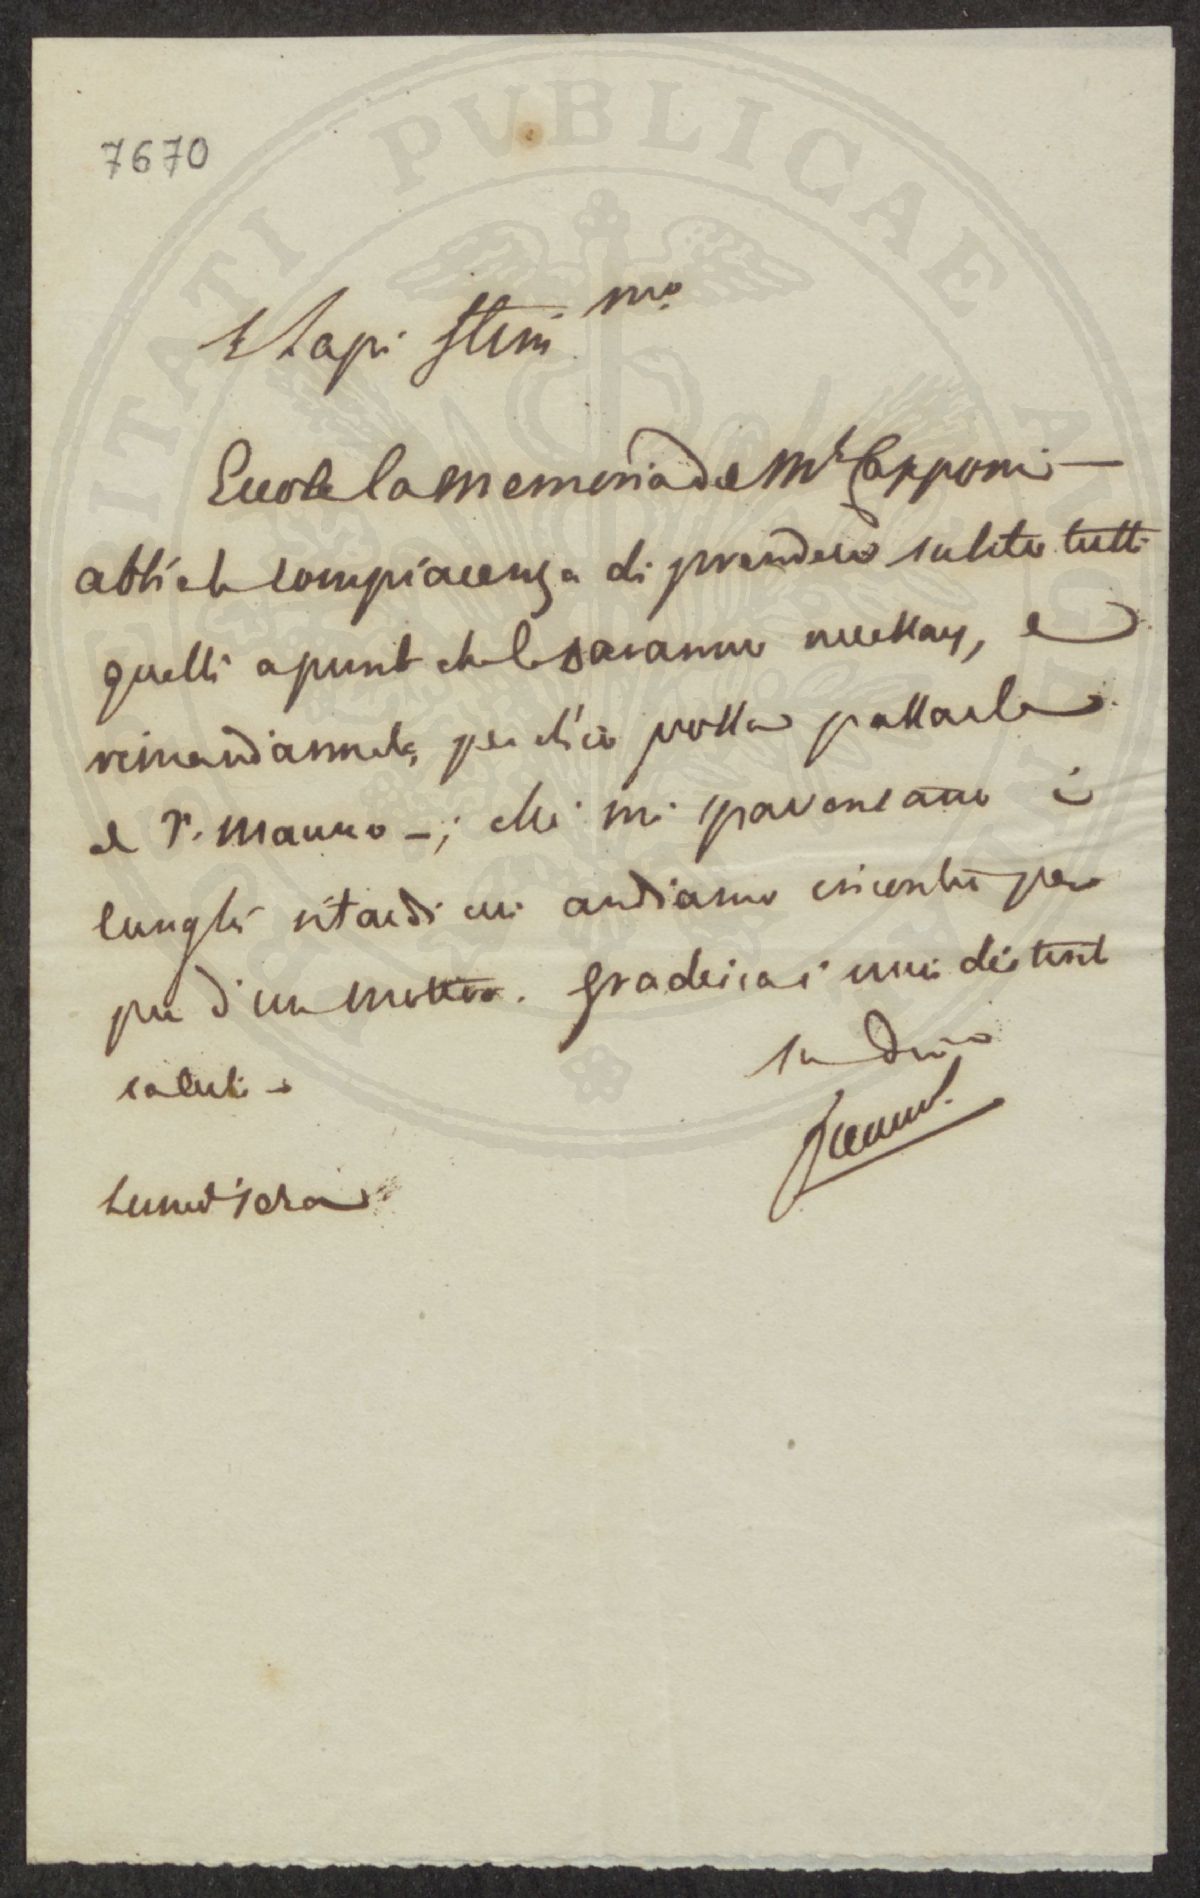 7670
PUBLICAE
Lapi Stim mo
Eccole la Memoria del Mse Capponi —
abbia la compiacenza di prendere subito tutti
quelli apunti che le saranno necessarj, e
rimandarmela, perch'io possa passarla
al S. Mauro —; che mi spaventano i
lunghi ritardi cui andiamo incontro per
più d'un motivo. Gradisca i miei distinti
saluti —
Suo Devo
Lunedì sera